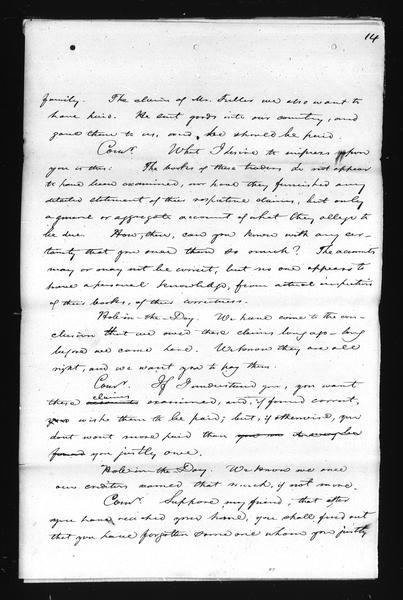 14
family. The claim of Mr. Fuller we also want to
have paid. He sent goods into our country, and
gave them to us, and he should be paid.
Comr. What I desire to impress upon
you is this: The books of these traders do not appear
to have been examined, nor have they furnished any
detailed statement of their respective claims, but only
a general or aggregate account of what they allege to
be due. How, then, can you know with any cer-
tainty that you owe them so much? The accounts
may or may not be correct, but no one appears to
have a personal knowledge, from actual inspection
of these books, of their correctness.
Hole-in-the-Day. We have come to the con-
clusion that we owed these claims long ago - long
before we come here. We know they are all
right, and we want you to pay them.
Comr. If I understand you, you want
these accounts claims examined, and, if found correct,
you wish them to be paid; but, if otherwise, you
dont want more paid than you
found you justly owe.
Hole-in-the-Day. We know we owe
our creditors named that much, if not more.
Comr. Suppose my friend, that after
you have reached your home, you shall find out
that you have forgotten some one whom you justly